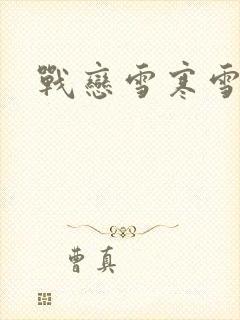 戰戀雪寒雪
曹真